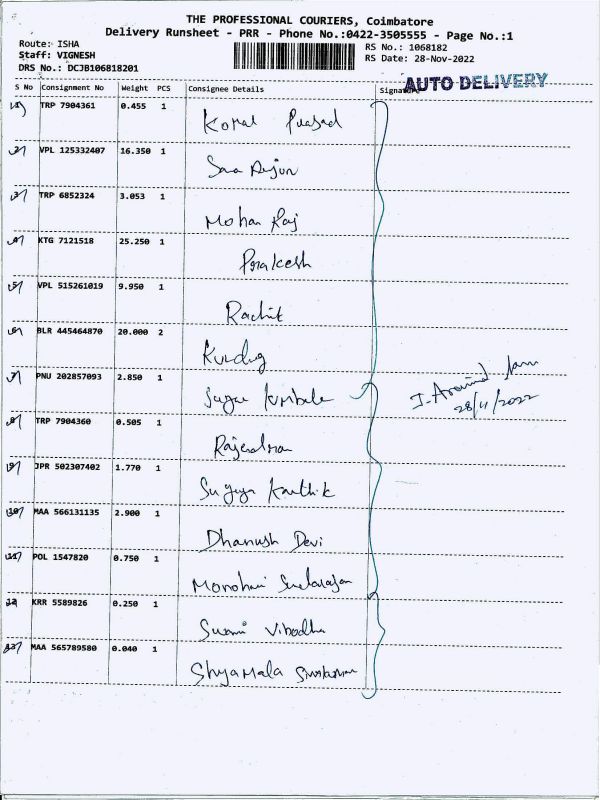 THE PROFESSIONAL COURIERS, Coimbatore
Delivery Runsheet - PRR - Phone No.:0422-3505555 - Page No.:1
Route: ISHA
Staff: VIGNESH
DRS No.: DCJB106818201
RS No.: 1068182
RS Date: 28-Nov-2022
AUTO DELIVERY
S No Consignment No Weight PCS Consignee Details Signature
1) TRP 7904361 0.455 1 Komal Prasad
2) VPL 125332407 16.350 1 Arjun
3) TRP 6852324 3.053 1 Mohan Raj
4) KTG 7121518 25.250 1 Prakash
5) VPL 515261019 9.950 1 Rachit
6) BLR 445464870 20.000 2
7) PNU 202857093 2.850 1
J. Aravind
28/11/2022
8) TRP 7904360 0.505 1
9) JPR 502307402 1.770 1 Karthik
10) MAA 566131135 2.900 1 Dhanush Devi
11) POL 1547820 0.750 1
12 KRR 5589826 0.250 1 Swami
13) MAA 565789580 0.040 1 Shyamala